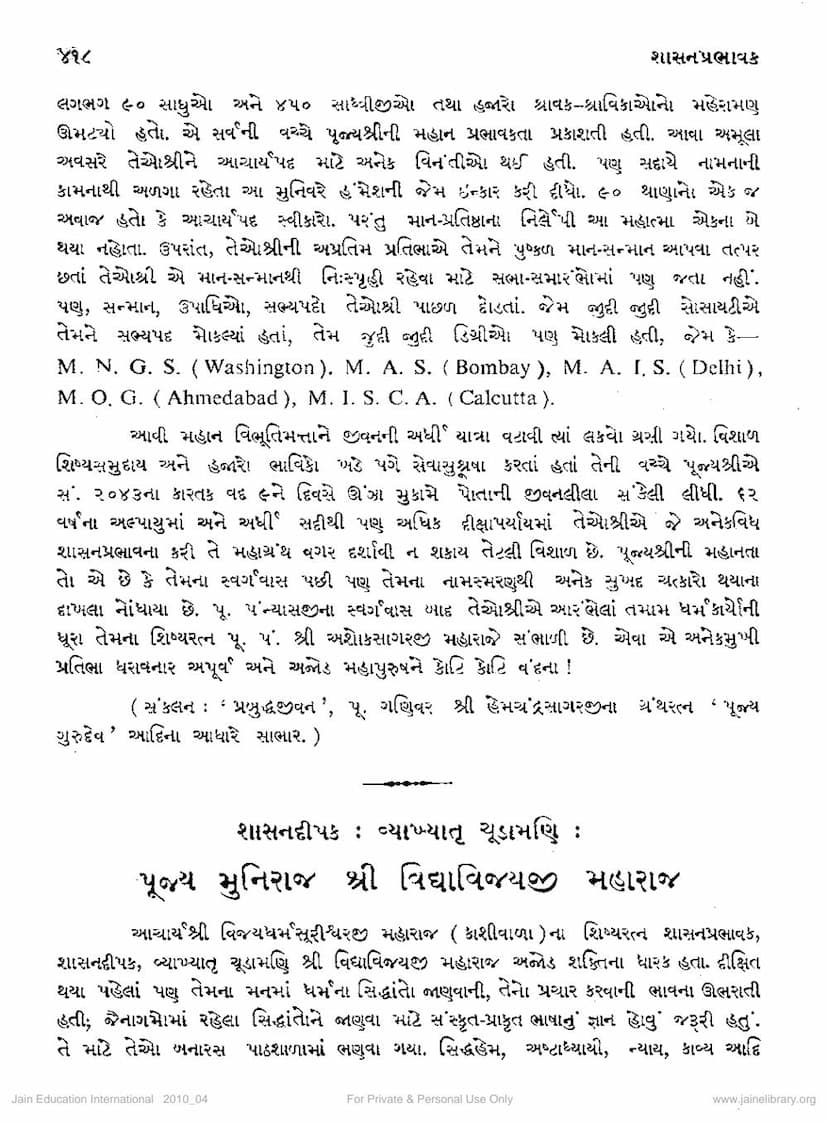 ૪૧૮ શાસનપ્રભાવક
લગભગ ૯૦ સાધુઓ અને ૪૫૦ સાધ્વીજીઓ તથા હજારો શ્રાવક-શ્રાવિકાઓનો મહેરામણ
ઊમટ્યો હતો. એ સર્વની વચ્ચે પૂજ્યશ્રીની મહાન પ્રભાવકતા પ્રકાશતી હતી. આવા અમૂલા
અવસરે તેઓશ્રીને આચાર્યપદ માટે અનેક વિનંતીઓ થઈ હતી. પણ સદાયે નામનાની
કામનાથી અળગા રહેતા આ મુનિવરે હંમેશની જેમ ઇન્કાર કરી દીધો. ૯૦ થાણાનો એક જ
અવાજ હતો કે આચાર્યપદ સ્વીકારો. પરંતુ માન-પ્રતિષ્ઠાના નિર્લેપી આ મહાત્મા એકના બે
થયા નહોતા. ઉપરાંત, તેઓશ્રીની અપ્રતિમ પ્રતિભાએ તેમને પુષ્કળ માન-સન્માન આપવા તત્પર
છતાં તેઓશ્રી એ માન-સન્માનથી નિઃસ્પૃહી રહેવા માટે સભા-સમારંભોમાં પણ જતા નહીં.
પણ, સન્માન, ઉપાધિઓ, સભ્યપદો તેઓશ્રી પાછળ દોડતાં. જેમ જુદી જુદી સોસાયટીએ
તેમને સભ્યપદ મોકલ્યાં હતાં, તેમ જુદી જુદી ડિગ્રીઓ પણ મોકલી હતી, જેમ કે—
M. N. G. S. ( Washington ). M. A. S. ( Bombay ), M. A. I. S. ( Delhi ),
M. O. G. ( Ahmedabad ), M. I. S. C. A. ( Calcutta ).
આવી મહાન વિભૂતિમત્તાને જીવનની અર્ધી યાત્રા વટાવી ત્યાં લકવો ગ્રસી ગયો. વિશાળ
શિષ્યસમુદાય અને હજારો ભાવિકો ખડે પગે સેવાસુશ્રૂષા કરતાં હતાં તેની વચ્ચે પૂજ્યશ્રીએ
સં. ૨૦૪૩ના કારતક વદ ૯ને દિવસે ઊંઝા મુકામે પોતાની જીવનલીલા સંકેલી લીધી. ૬૨
વર્ષના અલ્પાયુમાં અને અર્ધી સદીથી પણ અધિક દીક્ષાપર્યાયમાં તેઓશ્રીએ જે અનેકવિધ
શાસનપ્રભાવના કરી તે મહાગ્રંથ વગર દર્શાવી ન શકાય તેટલી વિશાળ છે. પૂજ્યશ્રીની મહાનતા
તો એ છે કે તેમના સ્વર્ગવાસ પછી પણ તેમના નામસ્મરણથી અનેક સુખદ ચત્કારો થયાના
દાખલા નોંધાયા છે. પૂ. પંન્યાસજીના સ્વર્ગવાસ બાદ તેઓશ્રીએ આરંભેલાં તમામ ધર્મકાર્યોની
ધૂરા તેમના શિષ્યરત્ન પૂ. પં. શ્રી અશોકસાગરજી મહારાજે સંભાળી છે. એવા એ અનેકમુખી
પ્રતિભા ધરાવનાર અપૂર્વ અને અજોડ મહાપુરુષને કોટિ કોટિ વંદના !
( સંકલન : ‘ પ્રબુદ્ધજીવન ’, પૂ. ગણિવર શ્રી હેમચંદ્રસાગરજીના ગ્રંથરત્ન ‘ પૂજ્ય
ગુરુદેવ ’ આદિના આધારે સાભાર. )
શાસનદીપક : વ્યાખ્યાતૃ ચૂડામણિ :
પૂજ્ય મુનિરાજ શ્રી વિદ્યાવિજયજી મહારાજ
આચાર્યશ્રી વિજયધર્મસૂરીશ્વરજી મહારાજ ( કાશીવાળા )ના શિષ્યરત્ન શાસનપ્રભાવક,
શાસનદીપક, વ્યાખ્યાતૃ ચૂડામણિ શ્રી વિદ્યાવિજયજી મહારાજ અજોડ શક્તિના ધારક હતા. દીક્ષિત
થયા પહેલાં પણ તેમના મનમાં ધર્મના સિદ્ધાંતો જાણવાની, તેનો પ્રચાર કરવાની ભાવના ઊભરાતી
હતી; જૈનાગમોમાં રહેલા સિદ્ધાંતોને જાણવા માટે સંસ્કૃત-પ્રાકૃત ભાષાનું જ્ઞાન હોવું જરૂરી હતું.
તે માટે તેઓ બનારસ પાઠશાળામાં ભણવા ગયા. સિદ્ધહેમ, અષ્ટાધ્યાયી, ન્યાય, કાવ્ય આદિ
Jain Education International 2010_04 For Private & Personal Use Only www.jainelibrary.org